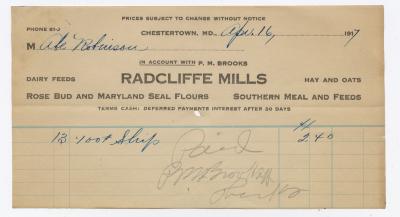 PRICES SUBJECT TO CHANGE WITHOUT NOTICE
PHONE 81-J
CHESTERTOWN, MD., Apr. 16, 1917
M Abe Robinson
IN ACCOUNT WITH P. M. BROOKS
DAIRY FEEDS RADCLIFFE MILLS HAY AND OATS
ROSE BUD AND MARYLAND SEAL FLOURS SOUTHERN MEAL AND FEEDS
TERMS CASH: DEFERRED PAYMENTS INTEREST AFTER 30 DAYS
100# Ship 2 40
Paid
PM Brooks